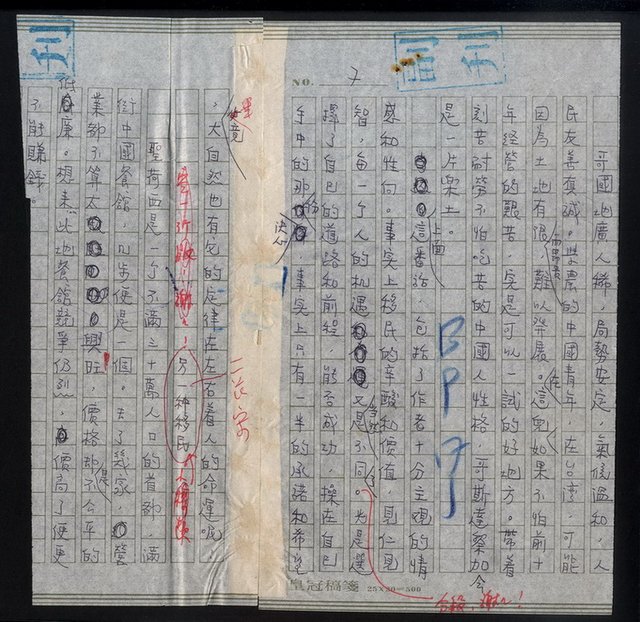 副刊
NO. 7
哥國地廣人稀,局勢安定,氣候溫和,人
民友善真誠。學農的中國青年,在台灣,可能
因為土地有限,難以發展。在這兒如果不怕前十
年經營的艱苦,實是可以一試的好地方。帶着
刻苦耐勞不怕吃苦的中國人性格,哥斯達黎加會
是一片樂土。
上面這番話,包括了作者十分主觀的情
感和性向。事實上移民的辛酸和價值,見仁見
智,每一個人的機遇當然又是不同。
擇了自己的道路和前程,能否成功,操在自己
手中的那份決心,事實上只有一半的承諾和希望
,大自然也有它的定律在左右着人的命運呢
另一種移民
二大字
聖荷西是一個不滿三十萬人口的首都,滿
街中國餐館,几步便是一個。去了幾家,營
業都不算太興旺,價格却是不公平的
低廉。想來此地餐館競爭仍烈,價高了便更
不能賺錢。
刊
BP 7
皇冠稿箋 25×20=500